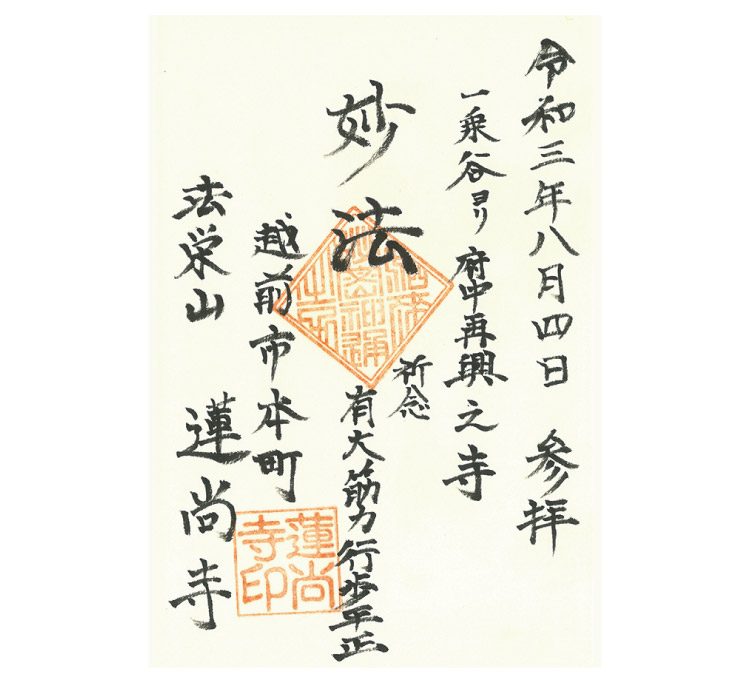 令和三年八月四日 参拝
一乗谷ヨリ 府中再興之寺
祈念
妙法
有大筋力 行歩平正
越前市本町
法栄山 蓮尚寺
蓮尚
寺印